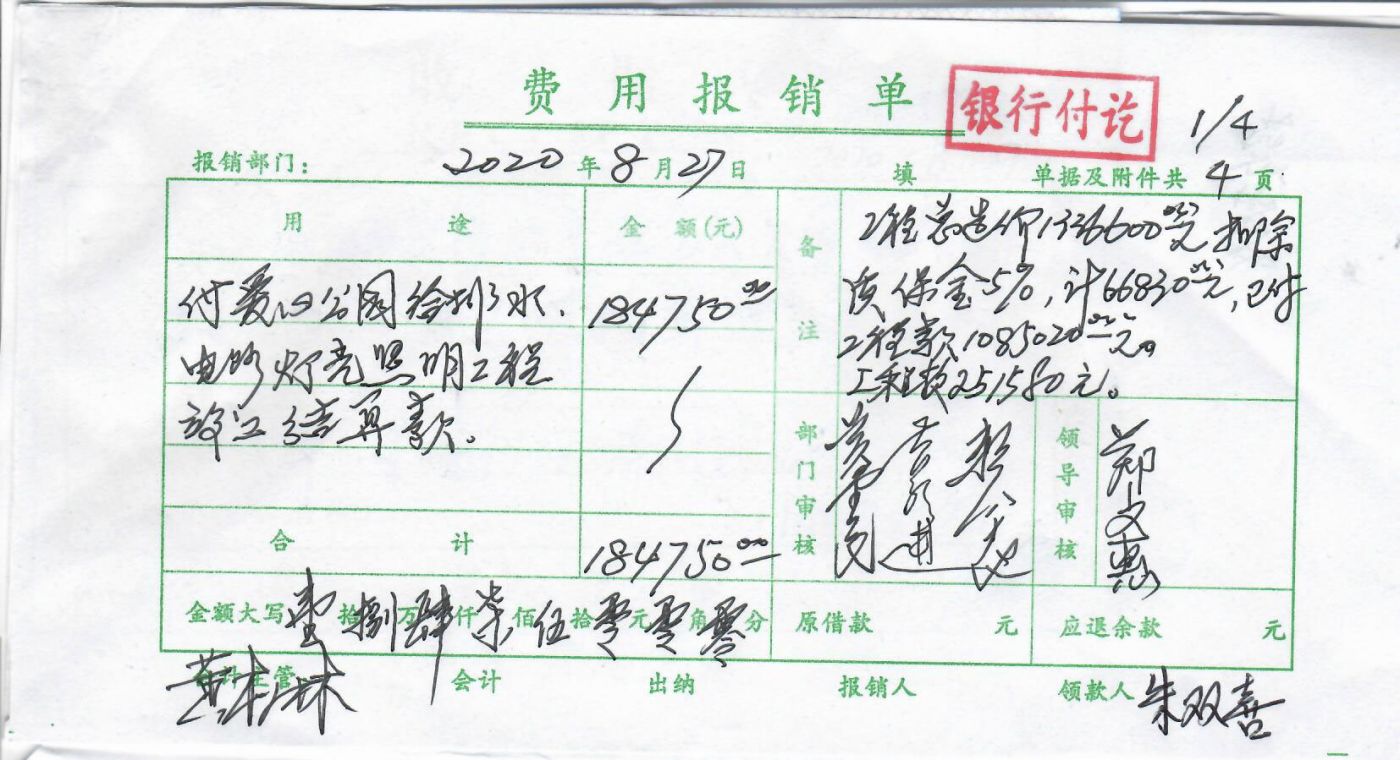 费用报销单
银行付讫
1/4
报销部门: 2020年8月27日 填 单据及附件共 4 页
用途 金额(元) 备注
工程总造价1336600元扣除
质保金5%,计66830元,已付
工程款1085020元。
工程款251580元。
付爱心公园给排水、 184750.00
电路灯亮照明工程
竣工结算款。
部门审核
领导审核 郑文惠
合计 184750.00
金额大写 壹拾捌万肆仟柒佰伍拾零元零角零分 原借款 元 应退余款 元
会计主管 会计 出纳 报销人 领款人 朱双喜